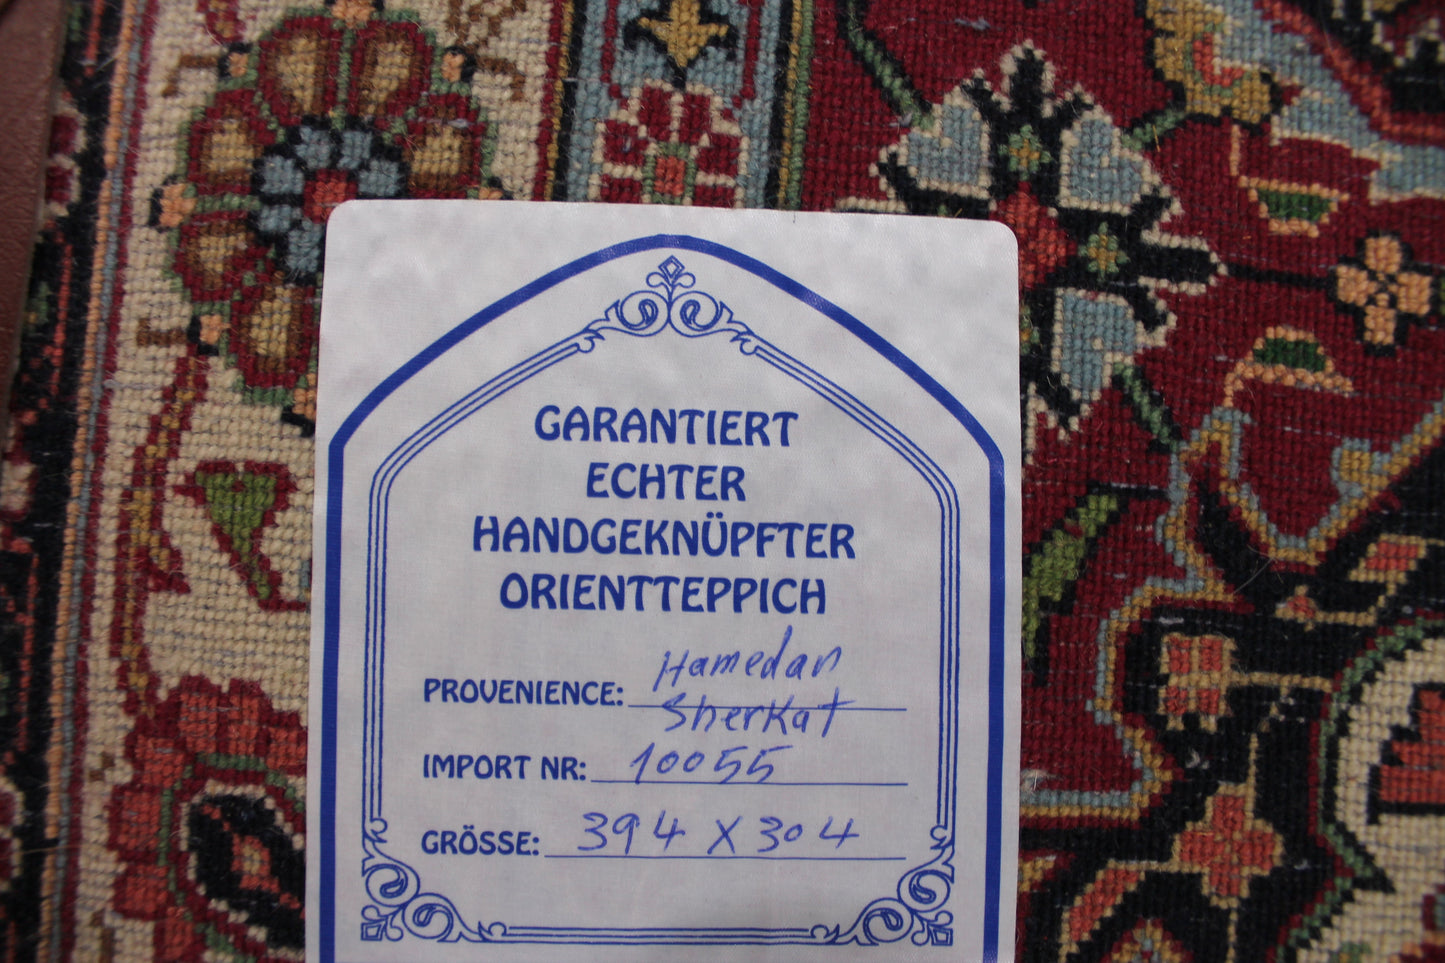 GARANTIERT
ECHTER
HANDGEKNÜPFTER
ORIENTTEPPICH
Hamedan
PROVENIENCE: Sherkat
IMPORT NR: 10055
GRÖSSE: 394 X 304